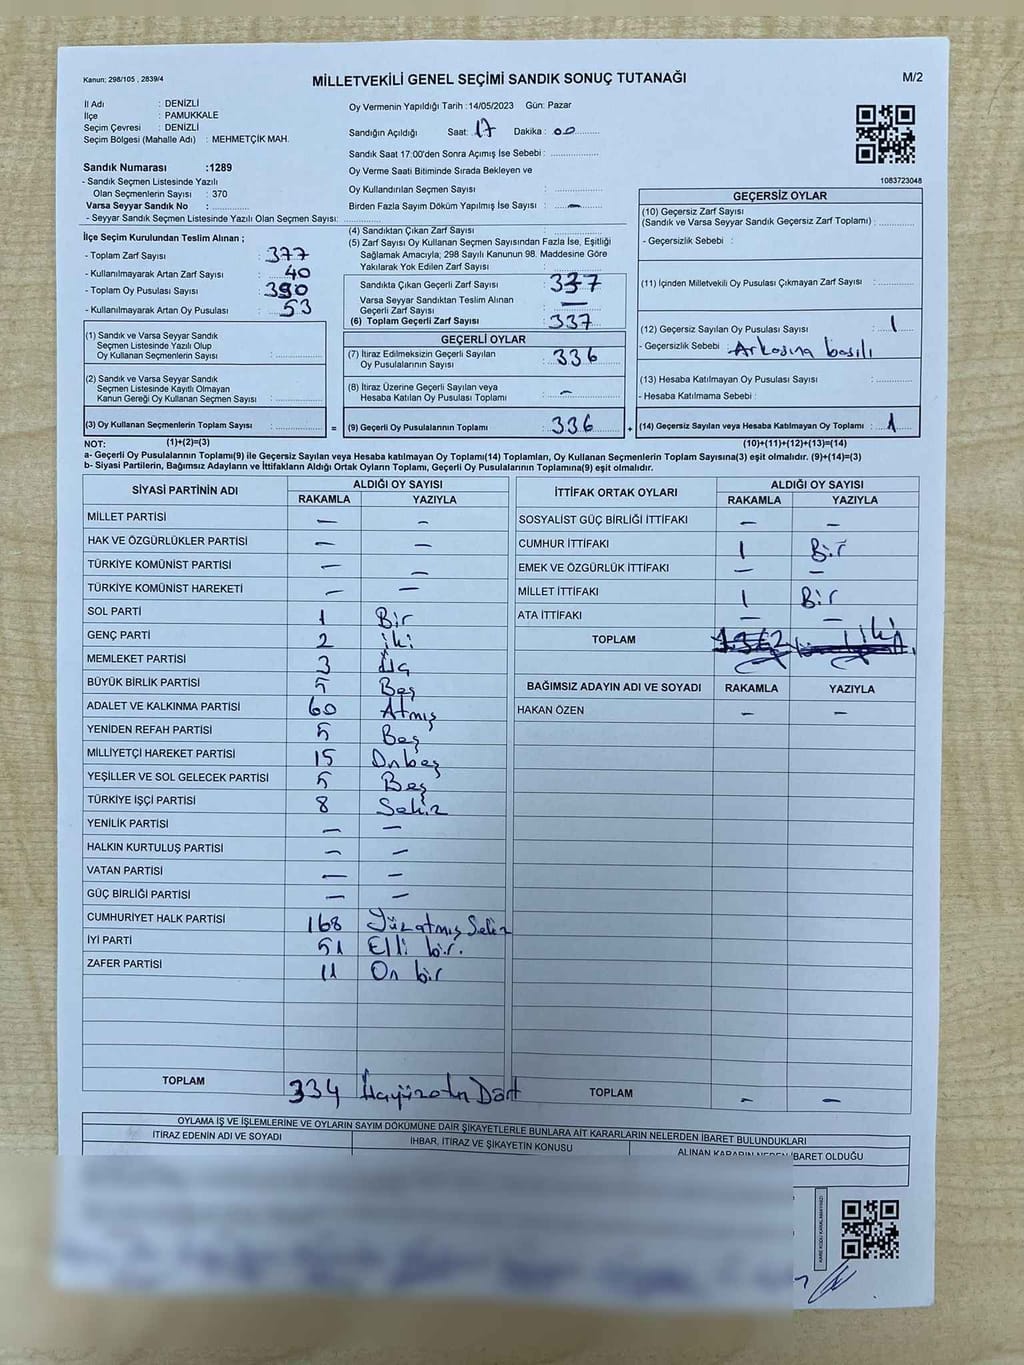 Kanun: 298/105 , 2839/4
MİLLETVEKİLİ GENEL SEÇİMİ SANDIK SONUÇ TUTANAĞI
M/2
İl Adı : DENİZLİ
İlçe : PAMUKKALE
Seçim Çevresi : DENİZLİ
Seçim Bölgesi (Mahalle Adı) : MEHMETÇİK MAH.
Sandık Numarası :1289
- Sandık Seçmen Listesinde Yazılı
Olan Seçmenlerin Sayısı : 370
Varsa Seyyar Sandık No :
- Seyyar Sandık Seçmen Listesinde Yazılı Olan Seçmen Sayısı:
Oy Vermenin Yapıldığı Tarih :14/05/2023 Gün: Pazar
Sandığın Açıldığı Saat: 17 Dakika : 00
Sandık Saat 17:00'den Sonra Açımış İse Sebebi :
Oy Verme Saati Bitiminde Sırada Bekleyen ve
Oy Kullandırılan Seçmen Sayısı :
Birden Fazla Sayım Döküm Yapılmış İse Sayısı : —
1083723048
İlçe Seçim Kurulundan Teslim Alınan ;
- Toplam Zarf Sayısı : 377
- Kullanılmayarak Artan Zarf Sayısı : 40
- Toplam Oy Pusulası Sayısı : 390
- Kullanılmayarak Artan Oy Pusulası : 53
(1) Sandık ve Varsa Seyyar Sandık
Seçmen Listesinde Yazılı Olup
Oy Kullanan Seçmenlerin Sayısı :
(2) Sandık ve Varsa Seyyar Sandık
Seçmen Listesinde Kayıtlı Olmayan
Kanun Gereği Oy Kullanan Seçmen Sayısı :
(3) Oy Kullanan Seçmenlerin Toplam Sayısı :
(4) Sandıktan Çıkan Zarf Sayısı :
(5) Zarf Sayısı Oy Kullanan Seçmen Sayısından Fazla İse, Eşitliği
Sağlamak Amacıyla; 298 Sayılı Kanunun 98. Maddesine Göre
Yakılarak Yok Edilen Zarf Sayısı :
Sandıkta Çıkan Geçerli Zarf Sayısı : 337
Varsa Seyyar Sandıktan Teslim Alınan
Geçerli Zarf Sayısı : —
(6) Toplam Geçerli Zarf Sayısı : 337
GEÇERLİ OYLAR
(7) İtiraz Edilmeksizin Geçerli Sayılan
Oy Pusulalarının Sayısı : 336
(8) İtiraz Üzerine Geçerli Sayılan veya
Hesaba Katılan Oy Pusulası Toplamı : —
= (9) Geçerli Oy Pusulalarının Toplamı : 336 +
GEÇERSİZ OYLAR
(10) Geçersiz Zarf Sayısı
(Sandık ve Varsa Seyyar Sandık Geçersiz Zarf Toplamı) :
- Geçersizlik Sebebi :
(11) İçinden Milletvekili Oy Pusulası Çıkmayan Zarf Sayısı :
(12) Geçersiz Sayılan Oy Pusulası Sayısı : 1
- Geçersizlik Sebebi : Arkasına basılı
(13) Hesaba Katılmayan Oy Pusulası Sayısı :
- Hesaba Katılmama Sebebi :
(14) Geçersiz Sayılan veya Hesaba Katılmayan Oy Toplamı : 1
NOT: (1)+(2)=(3) (10)+(11)+(12)+(13)=(14)
a- Geçerli Oy Pusulasının Toplamı(9) ile Geçersiz Sayılan veya Hesaba katılmayan Oy Toplamı(14) Toplamları, Oy Kullanan Seçmenlerin Toplam Sayısına(3) eşit olmalıdır. (9)+(14)=(3)
b- Siyasi Partilerin, Bağımsız Adayların ve İttifakların Aldığı Ortak Oyların Toplamı, Geçerli Oy Pusulalarının Toplamına(9) eşit olmalıdır.
SİYASİ PARTİNİN ADI ALDIĞI OY SAYISI
RAKAMLA YAZIYLA
MİLLET PARTİSİ — —
HAK VE ÖZGÜRLÜKLER PARTİSİ — —
TÜRKİYE KOMÜNİST PARTİSİ — —
TÜRKİYE KOMÜNİST HAREKETİ — —
SOL PARTİ 1 Bir
GENÇ PARTİ 2 iki
MEMLEKET PARTİSİ 3 Üç
BÜYÜK BİRLİK PARTİSİ 5 Beş
ADALET VE KALKINMA PARTİSİ 60 Atmış
YENİDEN REFAH PARTİSİ 5 Beş
MİLLİYETÇİ HAREKET PARTİSİ 15 Onbeş
YEŞİLLER VE SOL GELECEK PARTİSİ 5 Beş
TÜRKİYE İŞÇİ PARTİSİ 8 Sekiz
YENİLİK PARTİSİ — —
HALKIN KURTULUŞ PARTİSİ — —
VATAN PARTİSİ — —
GÜÇ BİRLİĞİ PARTİSİ — —
CUMHURİYET HALK PARTİSİ 168 Yüzatmış Sekiz
İYİ PARTİ 51 Elli bir.
ZAFER PARTİSİ 11 On bir
TOPLAM 334
İTTİFAK ORTAK OYLARI ALDIĞI OY SAYISI
RAKAMLA YAZIYLA
SOSYALİST GÜÇ BİRLİĞİ İTTİFAKI — —
CUMHUR İTTİFAKI 1 Bir
EMEK VE ÖZGÜRLÜK İTTİFAKI — —
MİLLET İTTİFAKI 1 Bir
ATA İTTİFAKI — —
TOPLAM 2 iki
BAĞIMSIZ ADAYIN ADI VE SOYADI RAKAMLA YAZIYLA
HAKAN ÖZEN — —
TOPLAM — —
OYLAMA İŞ VE İŞLEMLERİNE VE OYLARIN SAYIM DÖKÜMÜNE DAİR ŞİKAYETLERLE BUNLARA AİT KARARLARIN NELERDEN İBARET BULUNDUKLARI
İTİRAZ EDENİN ADI VE SOYADI İHBAR, İTİRAZ VE ŞİKAYETİN KONUSU ALINAN KARARIN NEDEN İBARET OLDUĞU